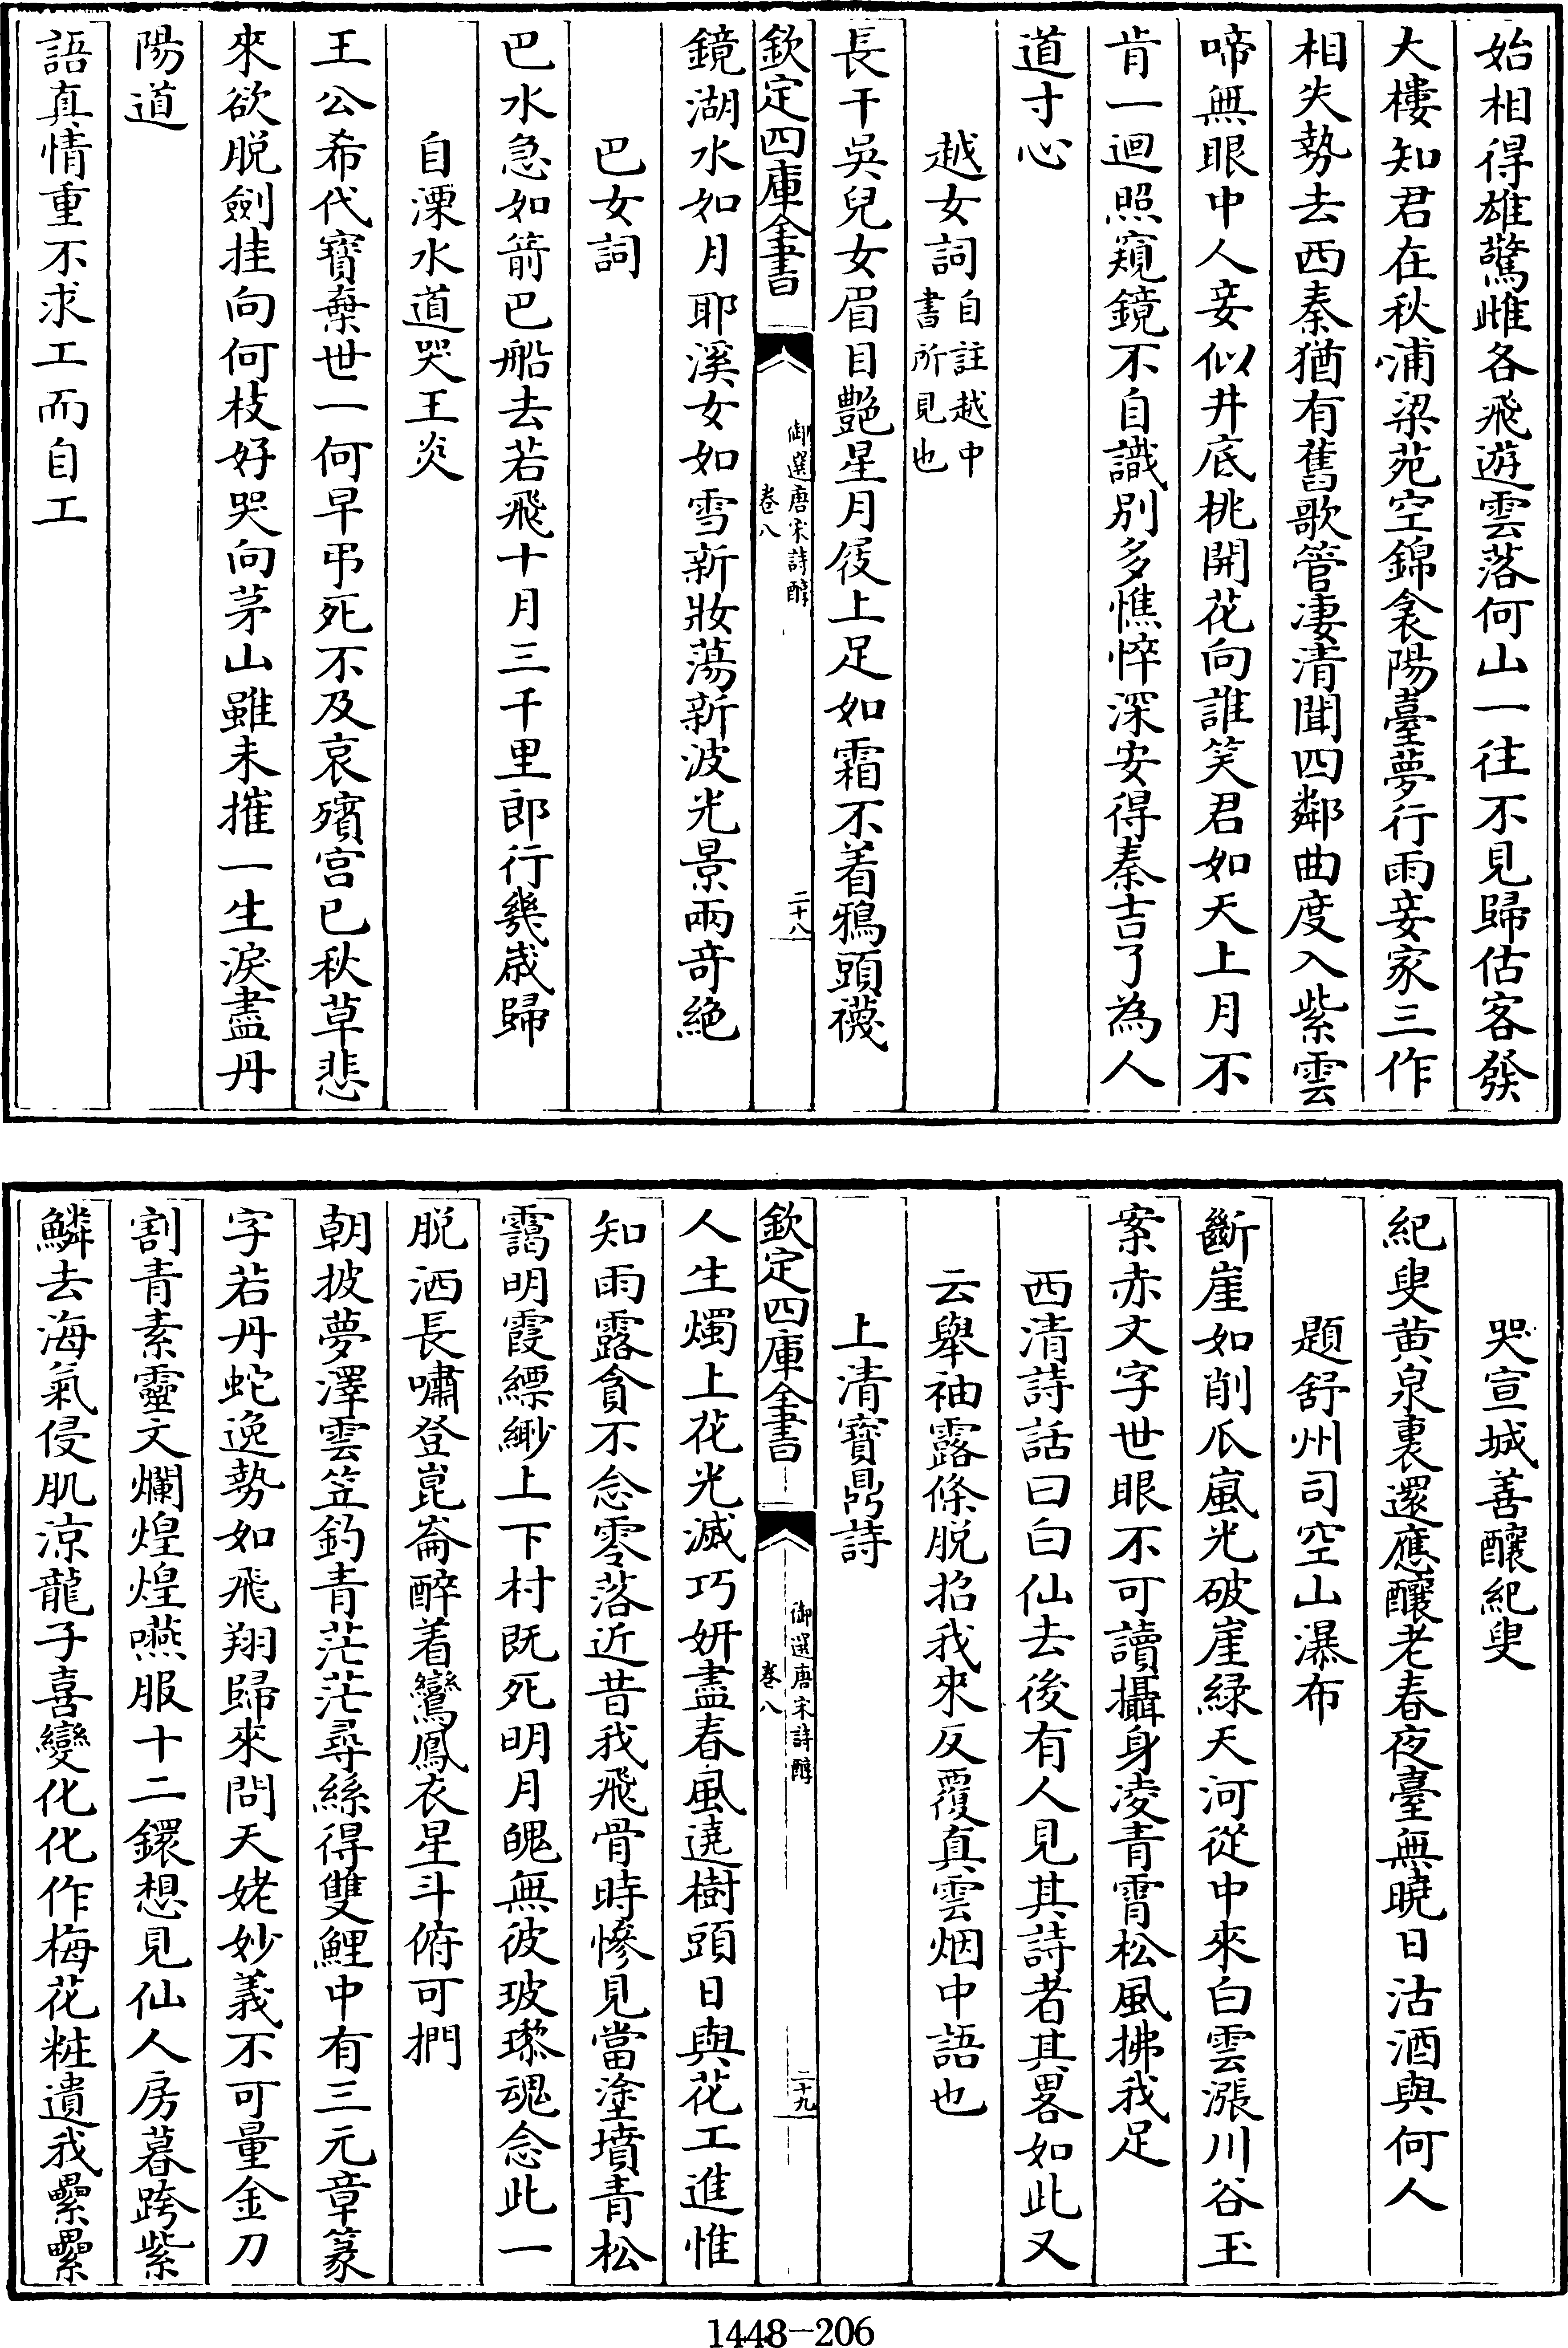 始相得雄驚雌各飛遊雲落何山一往不見歸估客發
大樓知君在秋浦梁苑空錦衾陽臺夢行雨妾家三作
相失勢去西秦猶有舊歌管凄清聞四鄰曲度入紫雲
啼無眼中人妾似井底桃開花向誰笑君如天上月不
肯一迴照窺鏡不自識别多憔悴深安得秦吉了為人
道寸心
越女詞自註越中
書所見也
長干吳兒女眉目艷星月屐上足如霜不着鴉頭襪
欽定四庫全書
御選唐宋詩醇
卷八
二十八
鏡湖水如月耶溪女如雪新妝蕩新波光景兩奇絶
巴女詞
巴水急如箭巴船去若飛十月三千里郎行幾歲歸
自溧水道哭王炎
王公希代寶棄世一何早弔死不及哀殯宫已秋草悲
來欲脱劍挂向何枝好哭向茅山雖未摧一生淚盡丹
陽道
語真情重不求工而自工
哭宣城善釀紀叟
紀叟黄泉裏還應釀老春夜臺無曉日沽酒與何人
題舒州司空山瀑布
斷崖如削瓜嵐光破崖緑天河從中來白雲漲川谷玉
案赤文字世眼不可讀攝身凌青霄松風拂我足
西清詩話曰白仙去後有人見其詩者其畧如此又
云舉袖露條脱招我來反覆真雲烟中語也
上清寶鼎詩
欽定四庫全書
御選唐宋詩醇
卷八
二十九
人生燭上花光滅巧妍盡春風遶樹頭日與花工進惟
知雨露貪不念零落近昔我飛骨時慘見當塗墳青松
靄明霞縹緲上下村既死明月魄無彼玻瓈魂念此一
脱洒長嘯登崑崙醉着鸞鳳衣星斗俯可捫
朝披夢澤雲笠釣青茫茫尋絲得雙鯉中有三元章篆
字若丹蛇逸勢如飛翔歸來問天姥妙義不可量金刀
割青素靈文爛煌煌嚥服十二鐶想見仙人房暮跨紫
鱗去海氣侵肌凉龍子喜變化化作梅花粧遺我纍纍
1448-206